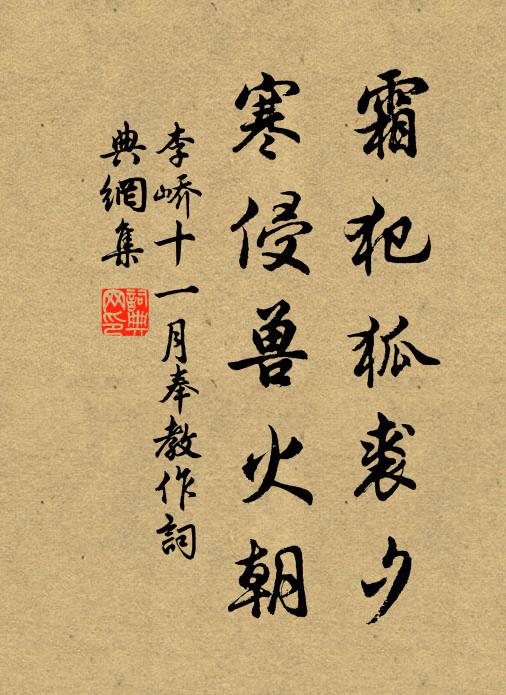 霜犯狐裘夕
寒侵兽火朝
李峤十一月奉教作詞
典網集
詞典网印